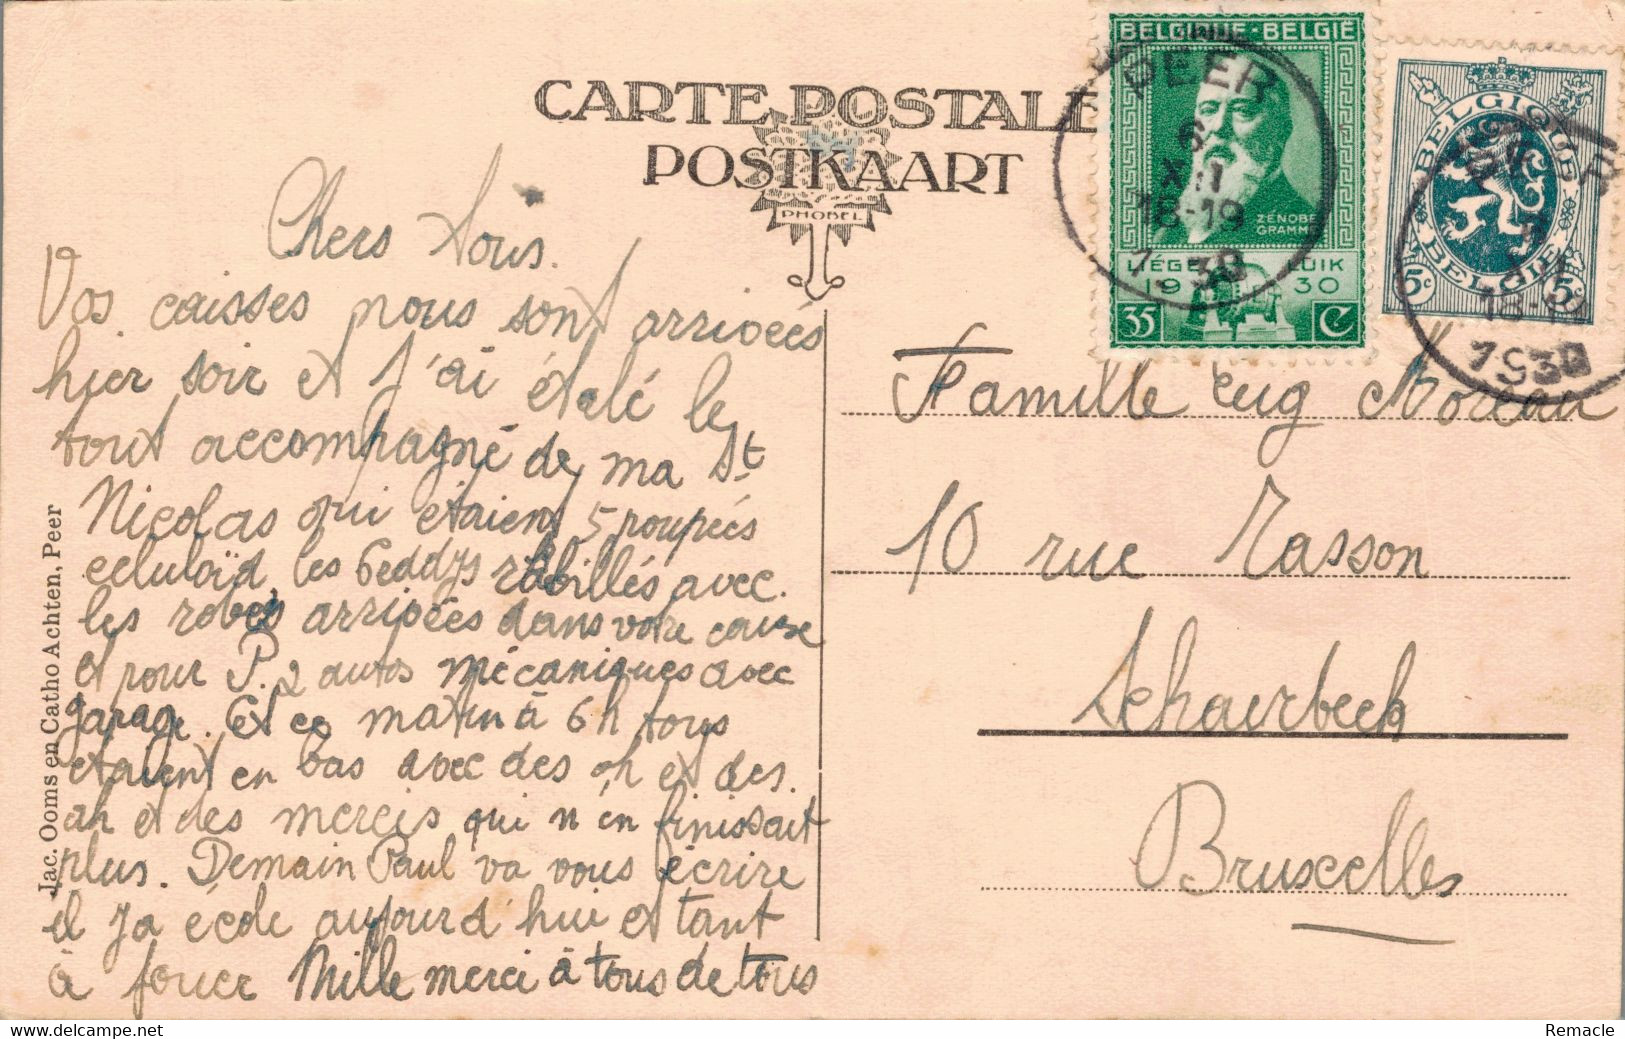 CARTE POSTALE
POSTKAART
PHOBEL
BELGIQUE-BELGIË
ZÉNOBE
GRAMME
LIÉGE LUIK
1930
35 C
PEER
6
XII
18-19
1930
BELGIQUE
BELGIË
5c 5c
PEER
6
XII
18-19
1930
Chers tous.
Vos caisses nous sont arrivées
hier soir et j'ai étalé le
tout accompagné de ma St
Nicolas qui étaient 5 poupées
celuloïd, les 6 eddys rabillés avec
les robes arrivées dans votre caisse
et pour P. 2 autos mécaniques avec
garage. Et ce matin à 6 h tous
étaient en bas avec des oh et des
ah et des mercis qui n'en finissait
plus. Demain Paul va vous écrire
il y a école aujourd'hui et tant
à jouer Mille merci à tous de tous
Famille Eug Moreau
10 rue Rasson
Schaerbeek
Bruxelles
Jac. Ooms en Catho Achten, Peer
delcampe.net
Remacle